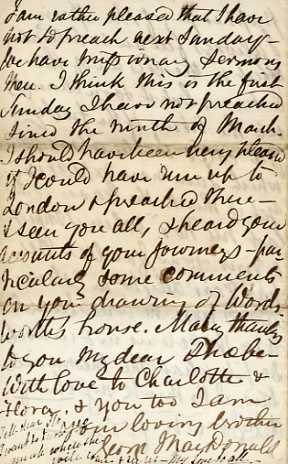 I am rather pleased that I have
not to preach next Sunday -
we have missionary sermons
then. I think this is the first
Sunday I have not preached
since the ninth of March.
I should have been very pleased
if I could have run up to
London & preached there -
& seen you all, & heard your
accounts of your journeys - par
ticularly some comments
on your drawing of Words
worth's house. Many thanks
to you My dear Phoebe -
With love to Charlotte &
Flora, & you too I am
your loving brother
George MacDonald